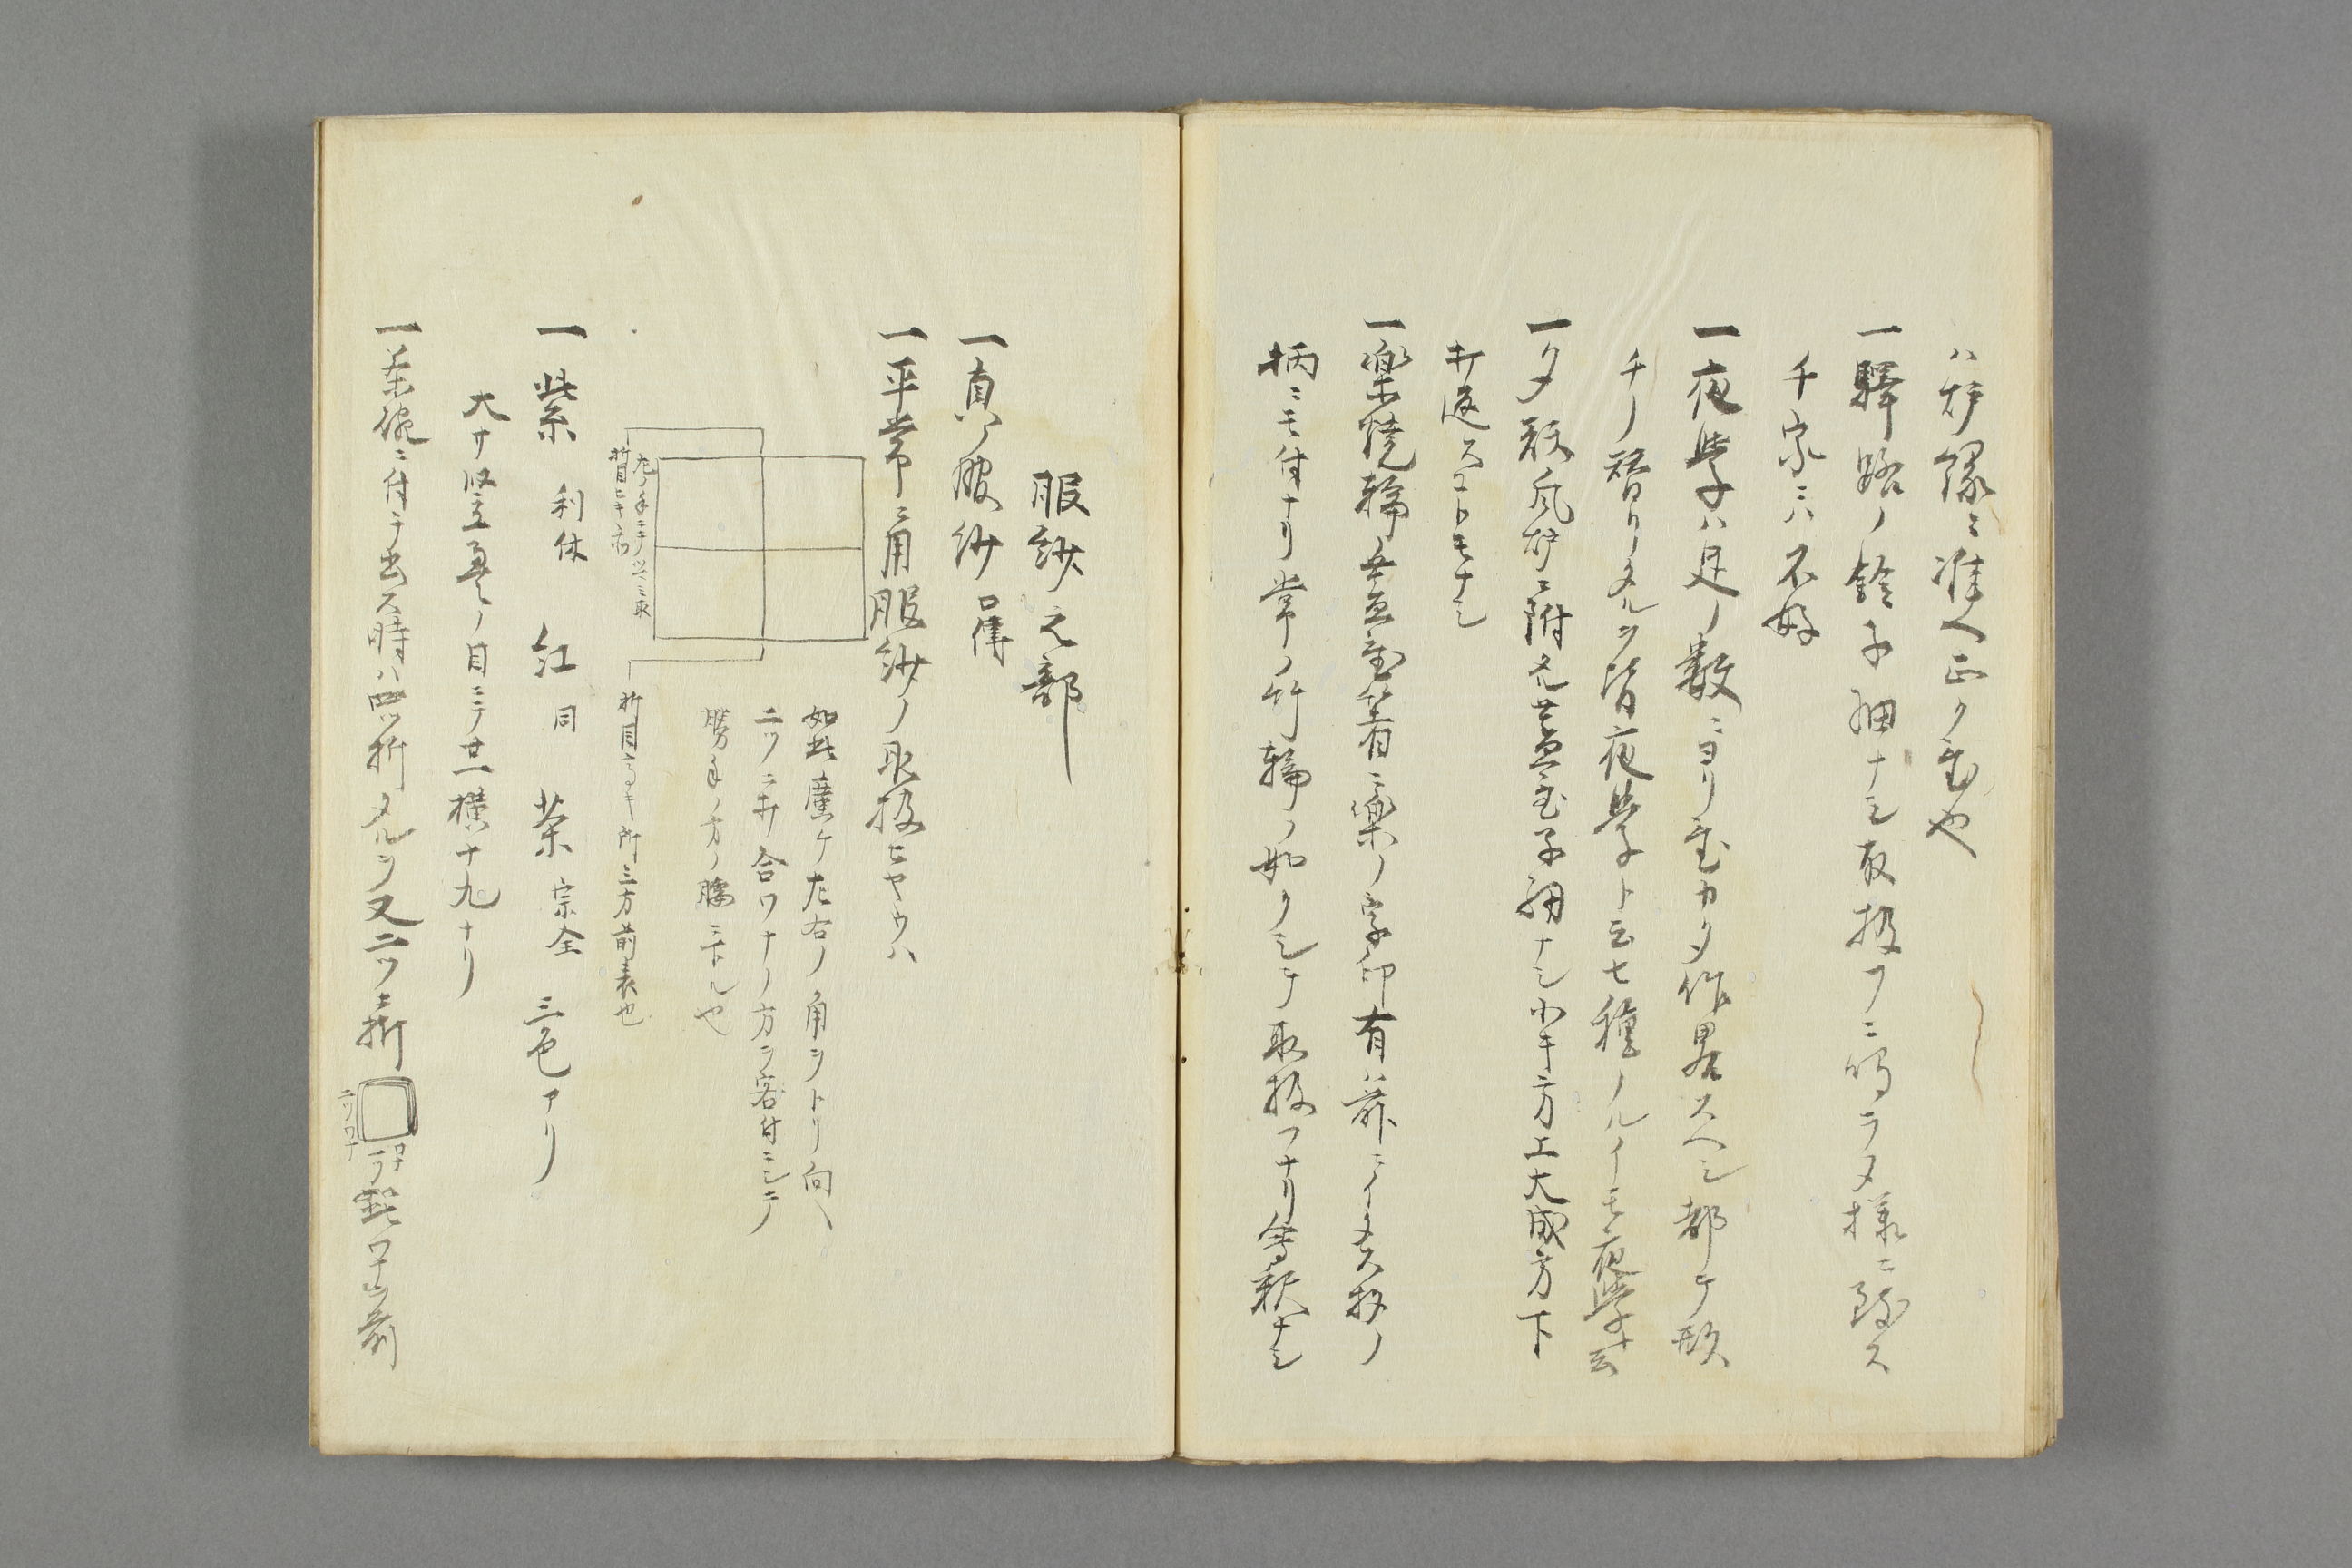 ハ炉縁ニ准ヘ正ク置也
一驛路ノ鈴子細ナシ取扱フニ鳴ラヌ様ニ致ス
千家ニハ不好
一夜學ハ足ノ数ニヨリ置カタ作畧スヘシ都テ形
チノ替リタルヲ皆夜學ト云七種ノルイモ夜學ト云
一夕顔風炉ニ附タル蓋置子細ナシ小キ方上大成方下
打返スコトモナシ
一樂焼輪ノ蓋置若ニ樂ノ字印有ハ前ニイタス杓ノ
柄ニモ付ナリ常ノ竹輪ノ如クシテ取扱フナリ會釈ナシ
服紗之部
一真ノ服紗 口傳
一平常ニ用服紗ノ取扱ヒヤウハ
如此廣ケ左右ノ角ヲトリ向ヘ
二ツニ折合ワナノ方ヲ客付ニシテ
勝手ノ方ノ膝ニ下ル也
左ノ手ニテツマミ取
折目ニキ右
折目高キ所三方前表也
一紫 利休 紅 同 茶 宗全 三色アリ
大サ竪畳ノ目ニテ廿一横十九ナリ
一茶碗ニ付テ出ス時ハ四ツ折タルヲ又二ツニ折
二ツワナ